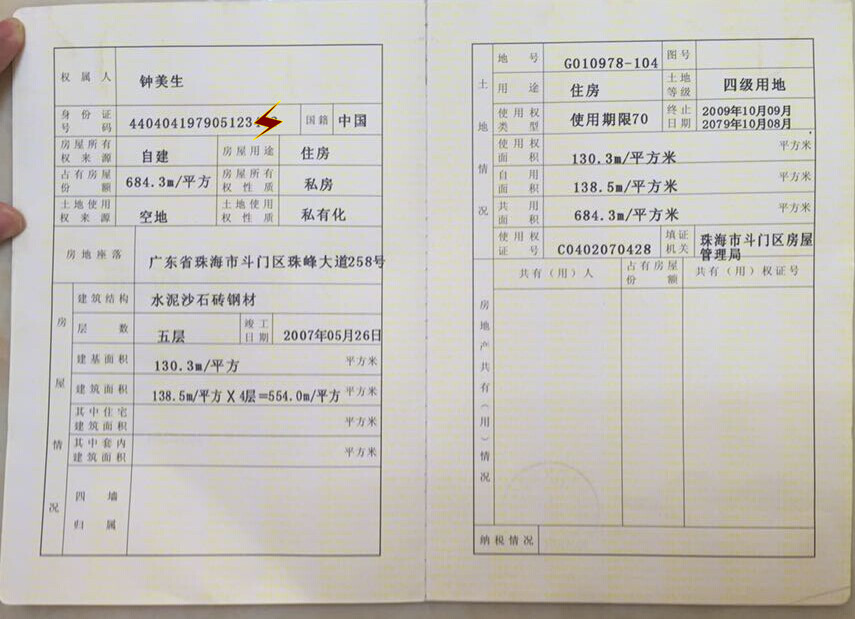 权属人 钟美生
身份证号码 440404197905123 国籍 中国
房屋所有权来源 自建 房屋用途 住房
占有房屋份额 684.3m/平方 房屋所有权性质 私房
土地使用权来源 空地 土地使用权性质 私有化
房地座落 广东省珠海市斗门区珠峰大道258号
房屋情况
建筑结构 水泥沙石砖钢材
层数 五层 竣工日期 2007年05月26日
建基面积 130.3m/平方 平方米
建筑面积 138.5m/平方 X 4层=554.0m/平方 平方米
其中住宅建筑面积 平方米
其中套内建筑面积 平方米
四墙归属
土地情况
地号 G010978-104 图号
用途 住房 土地等级 四级用地
使用权类型 使用期限70 终止日期 2009年10月09月
2079年10月08月
使用权面积 130.3m/平方米 平方米
自用面积 138.5m/平方米 平方米
共用面积 684.3m/平方米 平方米
使用权证号 C0402070428 填证机关 珠海市斗门区房屋
管理局
房地产共有(用)情况
共有(用)人 占有房屋份额 共有(用)权证号
纳税情况